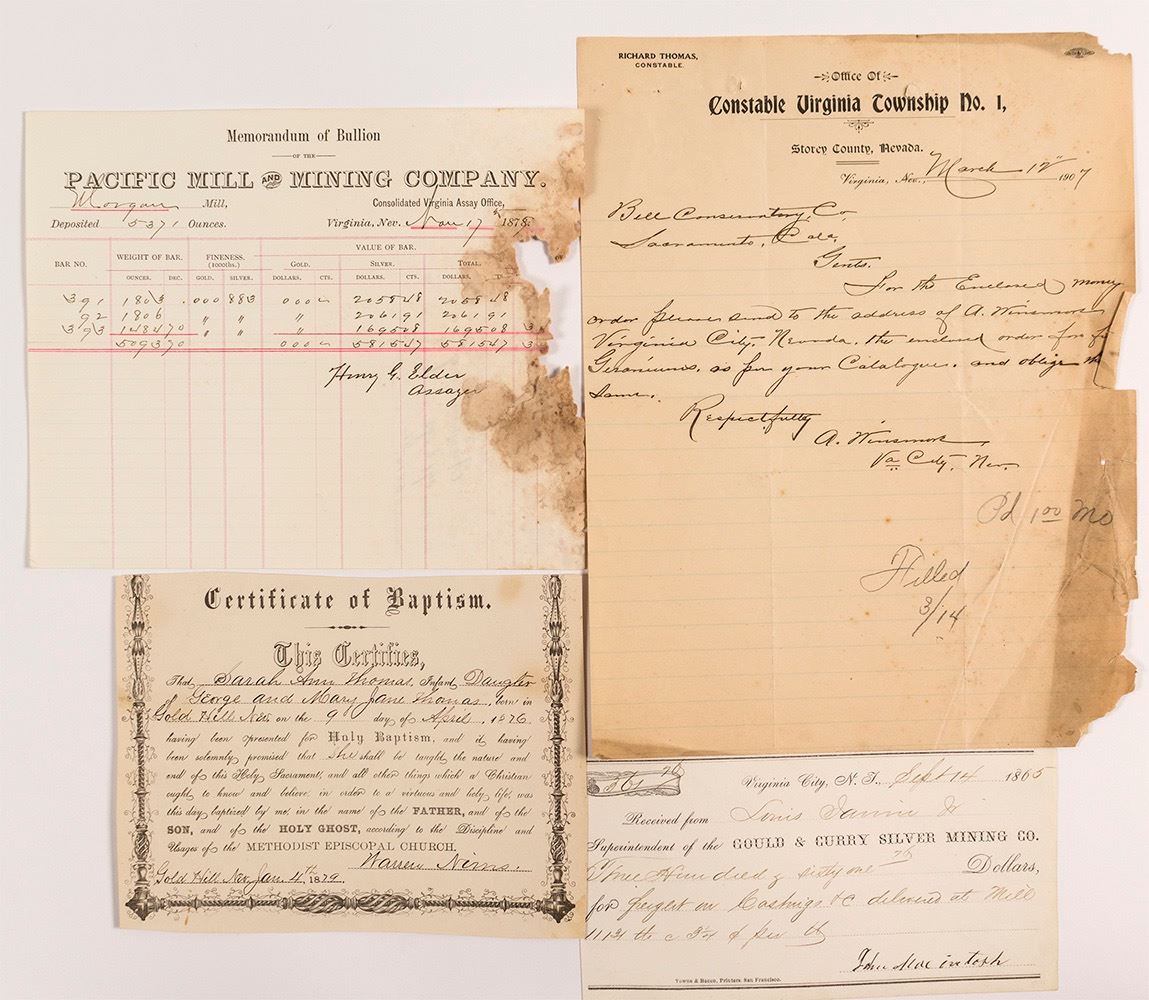 Memorandum of Bullion
OF THE
PACIFIC MILL AND MINING COMPANY.
Morgan Mill, Consolidated Virginia Assay Office,
Deposited 5371 Ounces. Virginia, Nev. 17 1878.
VALUE OF BAR.
BAR NO. WEIGHT OF BAR. FINENESS. (1000ths.) GOLD. SILVER. TOTAL.
OUNCES. DEC. GOLD. SILVER. DOLLARS. CTS. DOLLARS. CTS. DOLLARS.
391 1803 .000 883 2058 48 2058 48
92 1806 " " " 2061 91 2061 91
393 1484 70 " " " 1695 08 1695 08
5093 70 5815 47 5815 47
Henry G. Elder
Assayer
RICHARD THOMAS,
CONSTABLE.
Office Of
Constable Virginia Township No. 1,
Storey County, Nevada.
Virginia, Nev., March 12" 1907
Bell Conservatory Co,
Sacramento, Cala,
Gents.
For the Enclosed money
order please send to the address of A. Winsmore
Virginia City, Nevada, the enclosed order for
Geraniums, as per your Catalogue, and oblige the
Same.
Respectfully
A. Winsmore
Va City, Nev.
Pd 1 00 MO
Filled
3/14
Certificate of Baptism.
This Certifies,
That Sarah Ann Thomas, Infant Daugter
of George and Mary Jane Thomas, born in
Gold Hill Nev on the 9 day of April, 1876
having been presented for Holy Baptism, and it having
been solemnly promised that She shall be taught the nature and
end of this Holy Sacrament, and all other things which a Christian
ought to know and believe in order to a virtuous and holy life, was
this day baptized by me, in the name of the FATHER, and of the
SON, and of the HOLY GHOST, according to the Discipline and
Usages of the METHODIST EPISCOPAL CHURCH.
Warren Nims.
Gold Hill Nev, Jan 4th 1879
$361 76 Virginia City, N. T., Sept 14 1865
Received from Louis Janin Jr
Superintendent of the GOULD & CURRY SILVER MINING CO.
Three Hundred & sixty one 76 Dollars,
for freight on Castings &c delivered at Mill
11131 lbs
John MacIntosh
Towne & Bacon, Printers San Francisco.